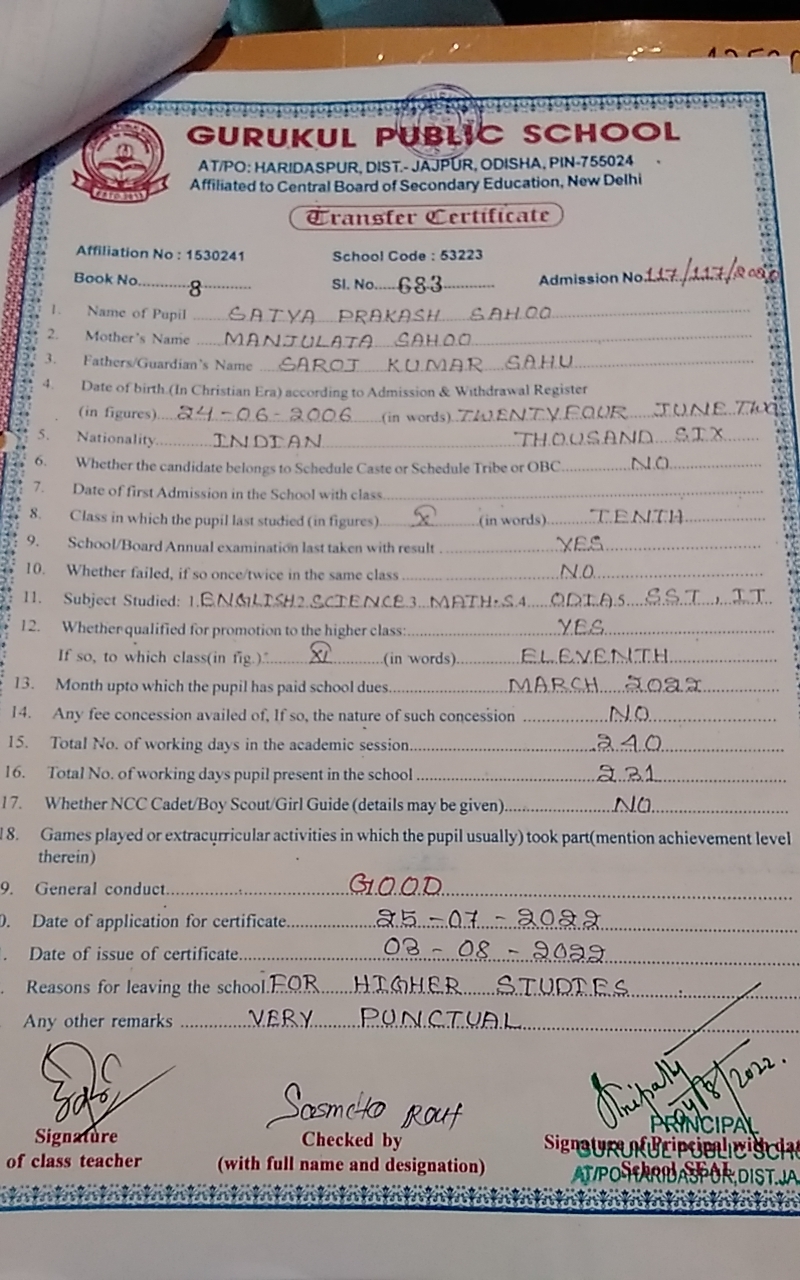 GURUKUL PUBLIC SCHOOL
AT/PO: HARIDASPUR, DIST.- JAJPUR, ODISHA, PIN-755024
Affiliated to Central Board of Secondary Education, New Delhi
Transfer Certificate
Affiliation No : 1530241 School Code : 53223
Book No. 8 Sl. No. 683 Admission No. 117/117/
1. Name of Pupil SATYA PRAKASH SAHOO
2. Mother's Name MANJULATA SAHOO
3. Fathers/Guardian's Name SAROJ KUMAR SAHU
4. Date of birth (In Christian Era) according to Admission & Withdrawal Register
(in figures) 24-06-2006 (in words) TWENTYFOUR JUNE TWO
5. Nationality INDIAN THOUSAND SIX
6. Whether the candidate belongs to Schedule Caste or Schedule Tribe or OBC NO
7. Date of first Admission in the School with class
8. Class in which the pupil last studied (in figures) X (in words) TENTH
9. School/Board Annual examination last taken with result YES
10. Whether failed, if so once/twice in the same class NO
11. Subject Studied: 1.ENGLISH 2.SCIENCE 3.MATHS 4. ODIA 5. SST, IT
12. Whether qualified for promotion to the higher class: YES
If so, to which class(in fig.) XI (in words) ELEVENTH
13. Month upto which the pupil has paid school dues MARCH 2022
14. Any fee concession availed of, If so, the nature of such concession NO
15. Total No. of working days in the academic session 240
16. Total No. of working days pupil present in the school 231
17. Whether NCC Cadet/Boy Scout/Girl Guide (details may be given) NO
18. Games played or extracurricular activities in which the pupil usually) took part(mention achievement level
therein)
9. General conduct GOOD
0. Date of application for certificate 25-07-2022
. Date of issue of certificate 03-08-2022
. Reasons for leaving the school FOR HIGHER STUDIES
Any other remarks VERY PUNCTUAL
04/8/2022.
Rout
Signature
of class teacher
Checked by
(with full name and designation)
PRINCIPAL
Signature of Principal with dat
School SEAL
GURUKUL PUBLIC SCHO
AT/PO-HARIDASPUR,DIST.JA